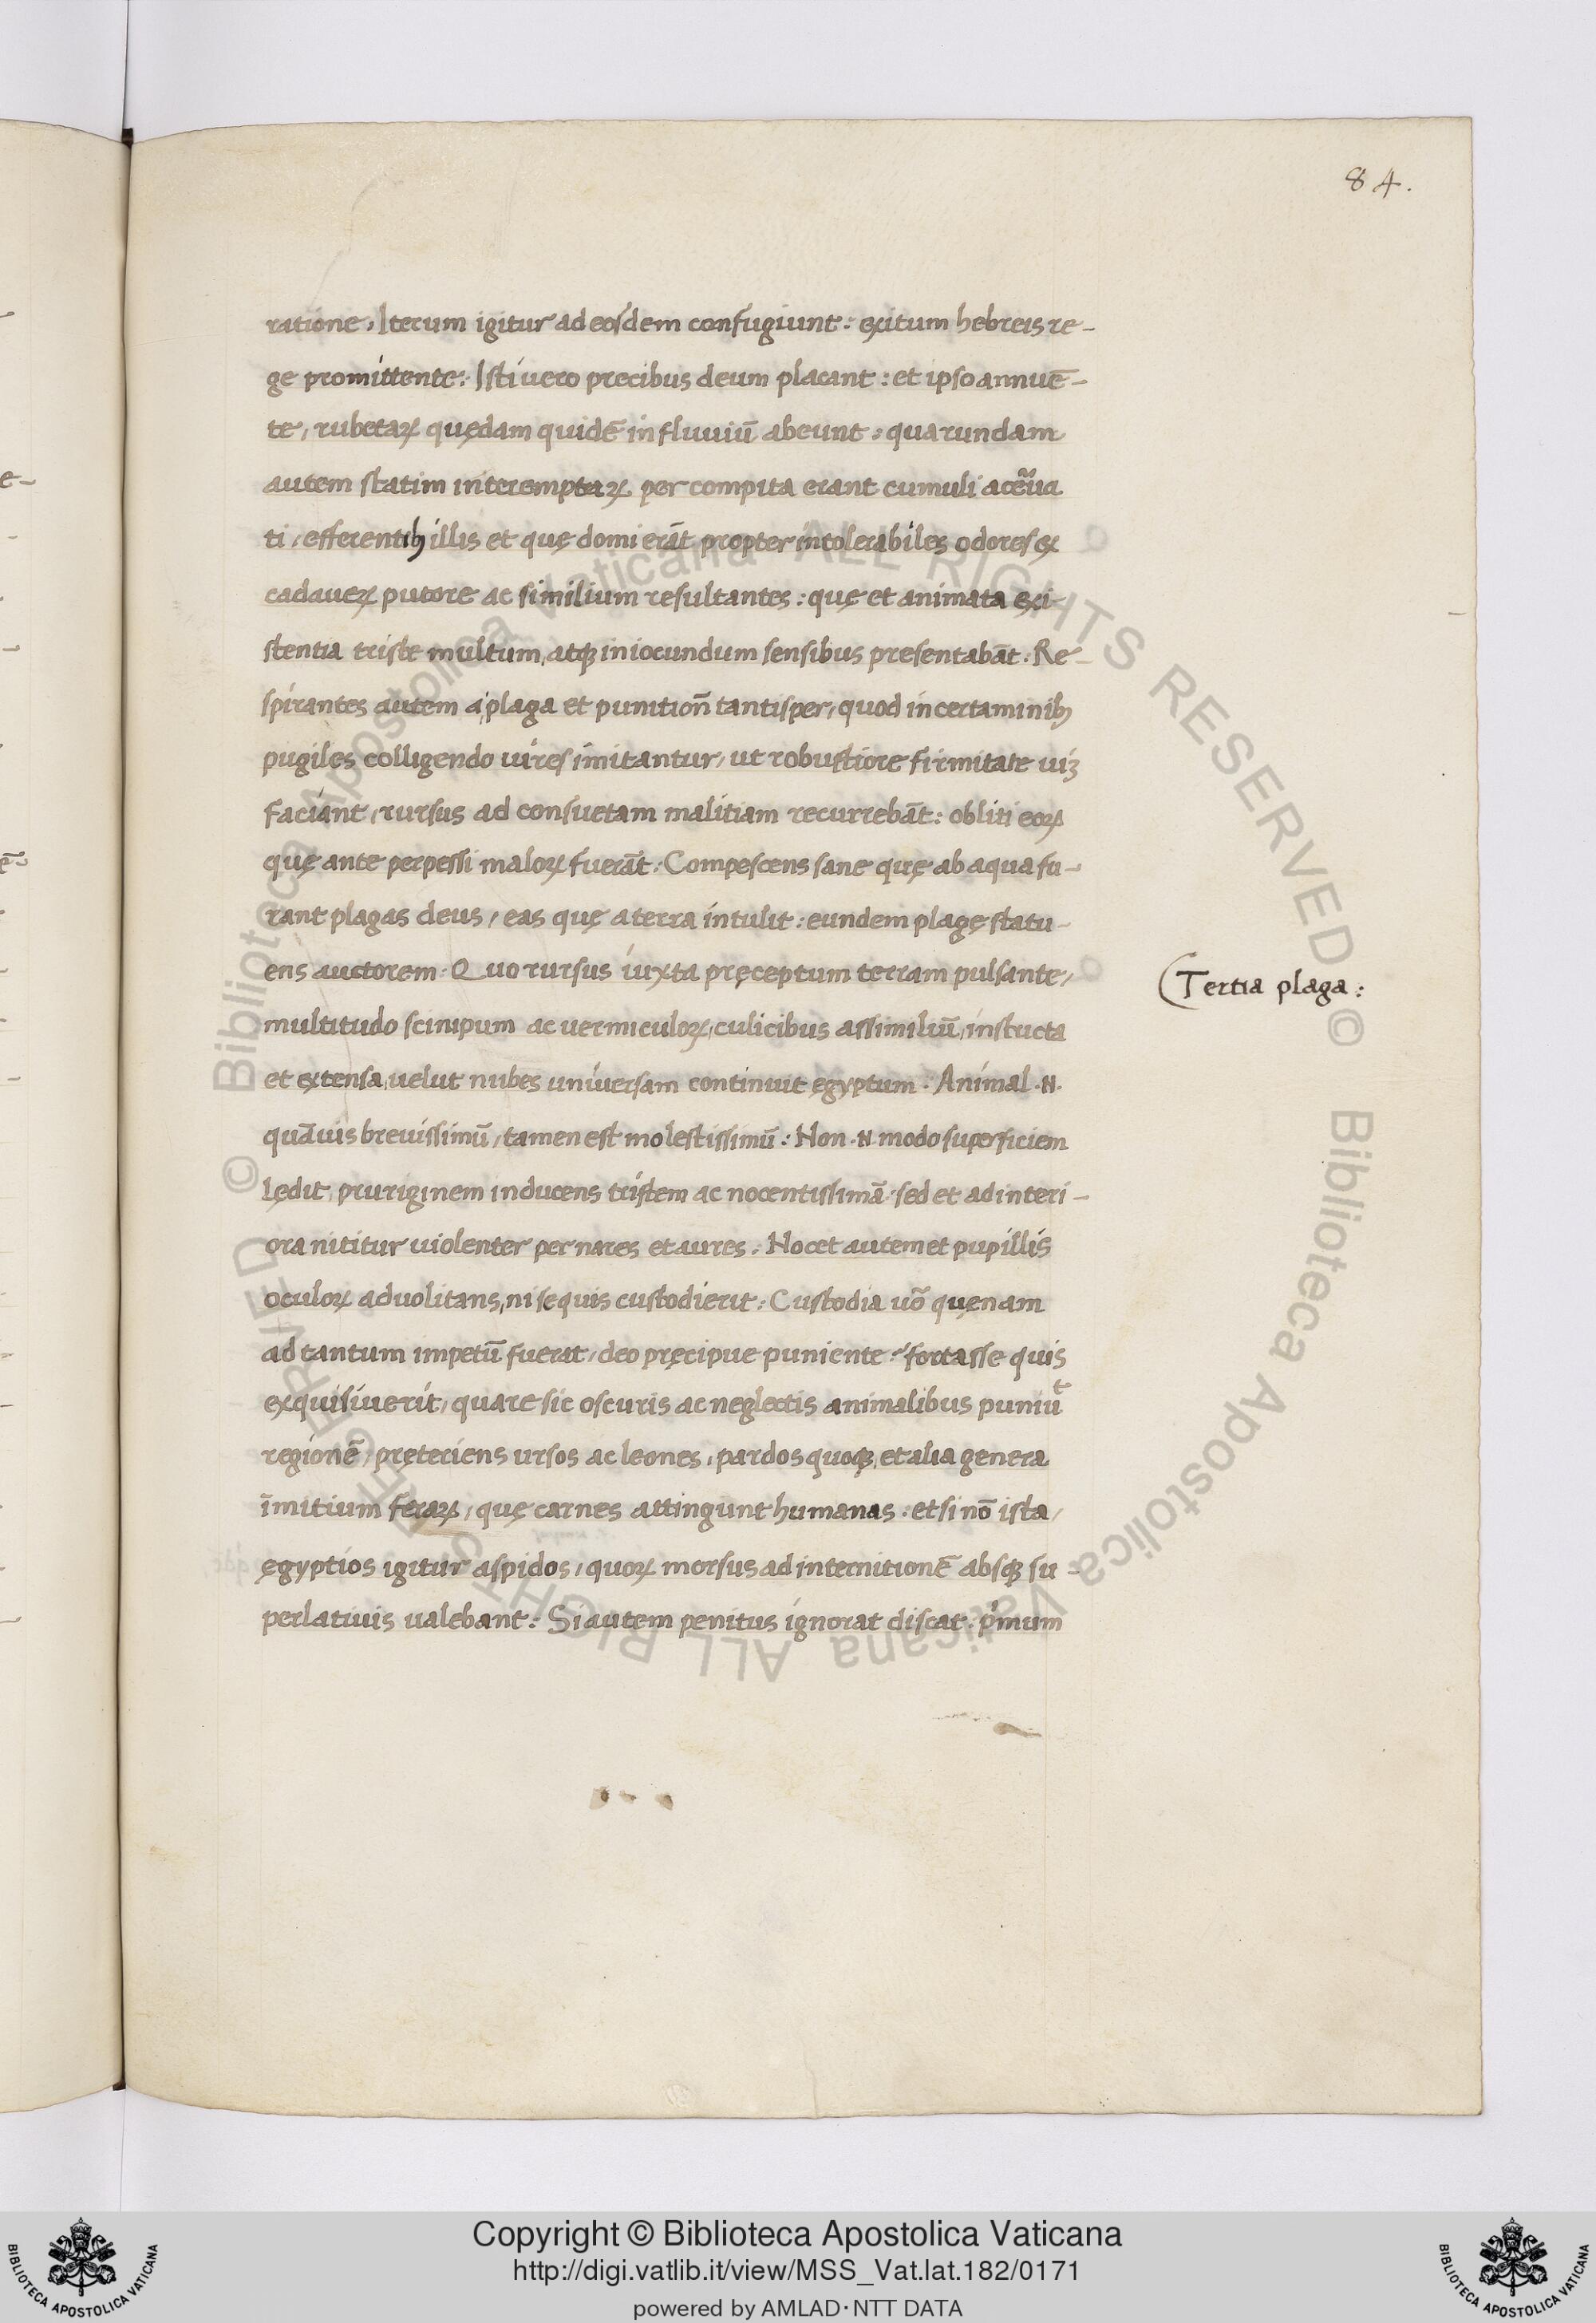 84.
ratione, Iterum igitur ad eosdem confugiunt: exitum hebreis re-
ge promittente: Isti uero precibus deum placant: et ipso annuē-
te, rubetaꝝ quędam quidē in fluuiū abeunt: quarundam
autem statim interemptaꝝ per compita erant cumuli
ti, efferentibꝫ illis et quę domi erāt propter intolerabiles odores ex
cadaueꝝ putore ac similium resultantes: quę et animata exi-
stentia triste multum, atqꝫ iniocundum sensibus presentabāt: Re-
spirantes autem a plaga et punitioñ tantisper, quod in certaminibꝫ
pugiles colligendo uires imitantur, ut robustiore firmitate uiꝫ
faciant, rursus ad consuetam malitiam recurrebāt: obliti eoꝝ
quę ante perpessi maloꝝ fuerāt: Compescens sane quę ab aqua fu-
rant plagas deus, eas quę a terra intulit: eundem plagę statu-
ens auctorem. Quo rursus iuxta pręceptum terram pulsante,
Tertia plaga:
multitudo scinipum ac uermiculoꝝ, culicibus assimiliū, instucta
et extensa, uelut nubes uniuersam continuit ęgyptum. Animal .N.
quāuis breuissimū, tamen est molestissimū: Non .N. modo superficiem
lędit, pruriginem inducens tristem ac nocentissimā. sed et ad interi-
ora nititur uiolenter per nares et aures: Nocet autem et pupillis
oculoꝝ aduolitans, ni se quis custodierit: Custodia uō quęnam
ad tantum impetū fuerat, deo pręcipue puniente? fortasse quis
exquisiuerit, quare sic oscuris ac neglectis animalibus puniūt
regionē, pręteriens ursos ac leones, pardos quoqꝫ, et alia genera
īmitium feraꝝ, quę carnes attingunt humanas: et si nō ista,
ęgyptios igitur aspidos, quoꝝ morsus ad internitionē absqꝫ su-
perlatiuis ualebant: Si autem penitus ignorat discat. pͥmum
Copyright © Biblioteca Apostolica Vaticana
http://digi.vatlib.it/view/MSS_Vat.lat.182/0171
powered by AMLAD·NTT DATA
BIBLIOTECA APOSTOLICA VATICANA
BIBLIOTECA APOSTOLICA VATICANA
© Biblioteca Apostolica Vaticana ALL RIGHTS RESERVED
© Biblioteca Apostolica Vaticana ALL RIGHTS RESERVED